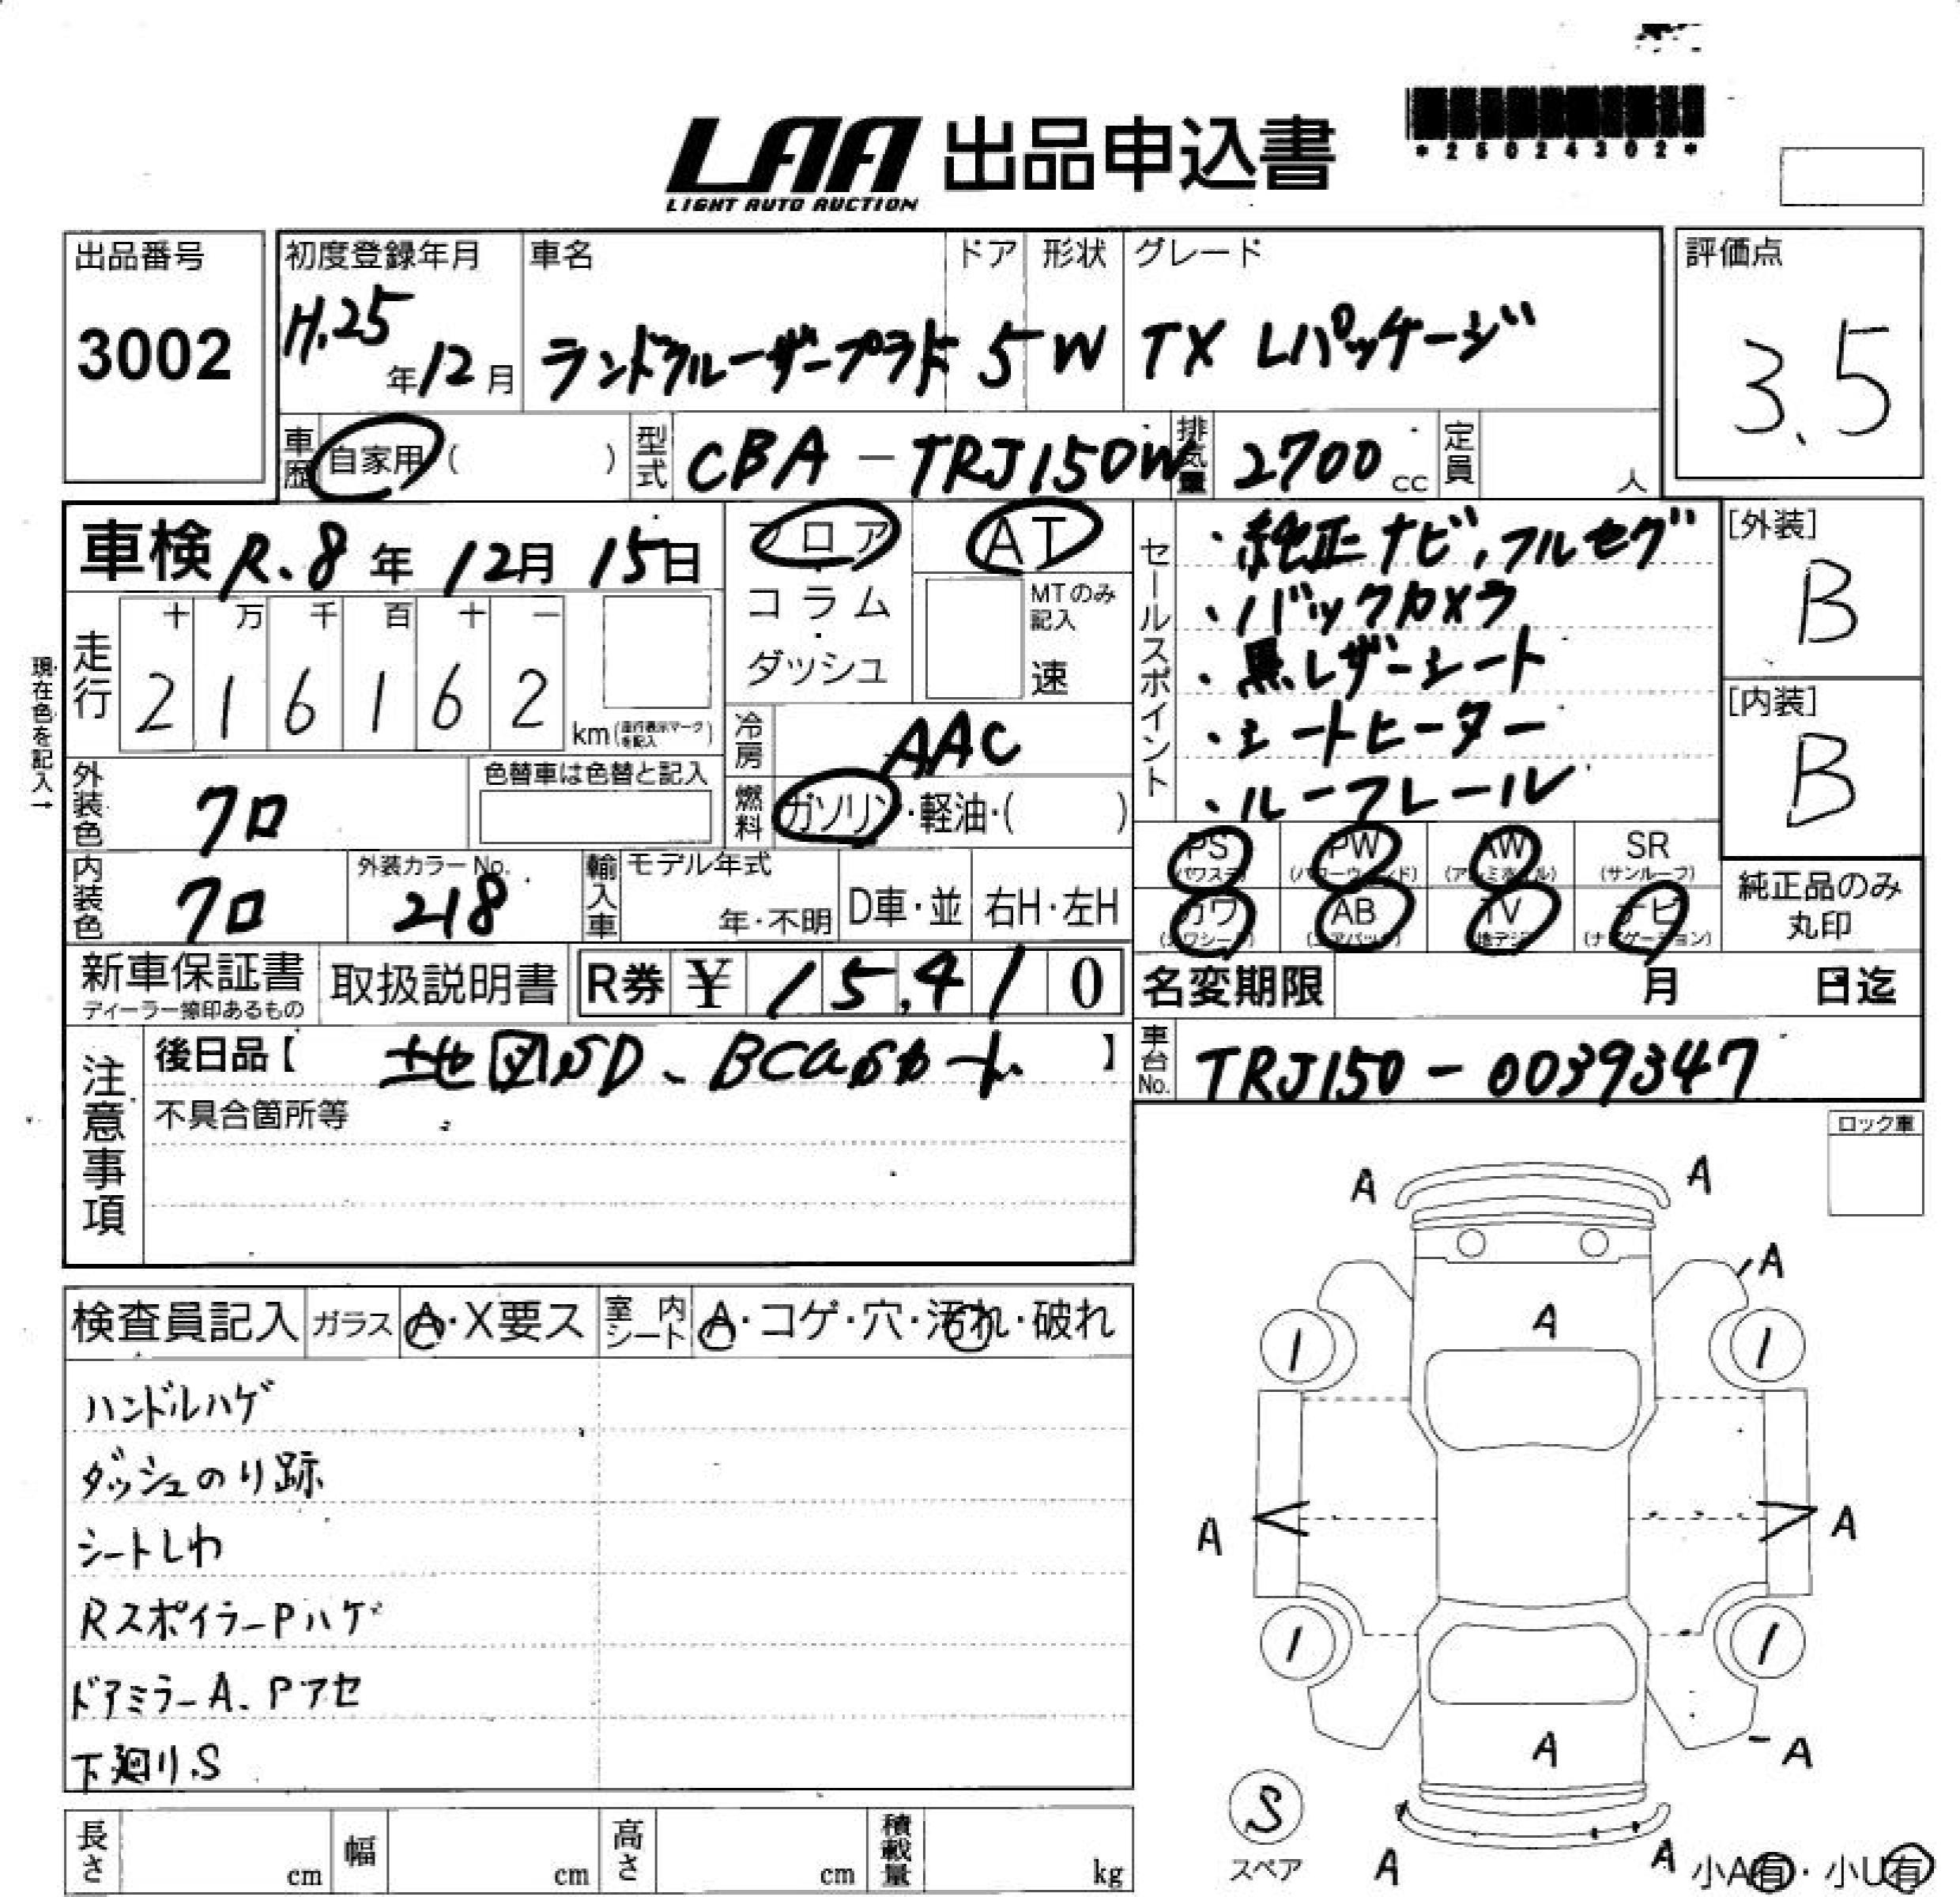 LAA 出品申込書
LIGHT AUTO AUCTION
*25024302*
出品番号
3002
初度登録年月
H.25年12月
車名
ランドクルーザープラド
ドア
5
形状
W
グレード
TX Lパッケージ
評価点
3.5
車歴 自家用 ( )
型式 CBA-TRJ150W
排気量 2700 cc
定員 人
車検 R.8年12月15日
フロア
コラム
・
ダッシュ
AT
MTのみ記入
速
セールスポイント
・純正ナビ,フルセグ
・バックカメラ
・黒レザーシート
・シートヒーター
・ルーフレール
[外装]
B
[内装]
B
現在色を記入→
走行
十 万 千 百 十 一
2 1 6 1 6 2
km (走行表示マークを記入)
冷房 AAC
外装色 クロ
色替車は色替と記入
燃料 ガソリン・軽油・( )
内装色 クロ
外装カラーNo.
218
輸入車
モデル年式
年・不明
D車・並
右H・左H
PS (パワステ)
PW (パワーウィンド)
AW (アルミホイル)
SR (サンルーフ)
カワ (カワシート)
AB (エアバック)
TV (地デジ)
ナビ (ナビゲーション)
純正品のみ
丸印
新車保証書
ディーラー捺印あるもの
取扱説明書
R券 ¥ 15,410
名変期限 月 日迄
注意事項
後日品【 地図SD、BCasカード 】
車台No. TRJ150-0039347
不具合箇所等
ロック車
検査員記入
ガラス A・X要ス
室内シート A・コゲ・穴・汚れ・破れ
ハンドルハゲ
ダッシュのり跡
シートしわ
RスポイラーPハゲ
ドアミラーA、Pアセ
下廻り、S
A A
A
A
1 1
A A
1 1
A
A
S
スペア
A A
小A有・小U有
長さ cm
幅 cm
高さ cm
積載量 kg